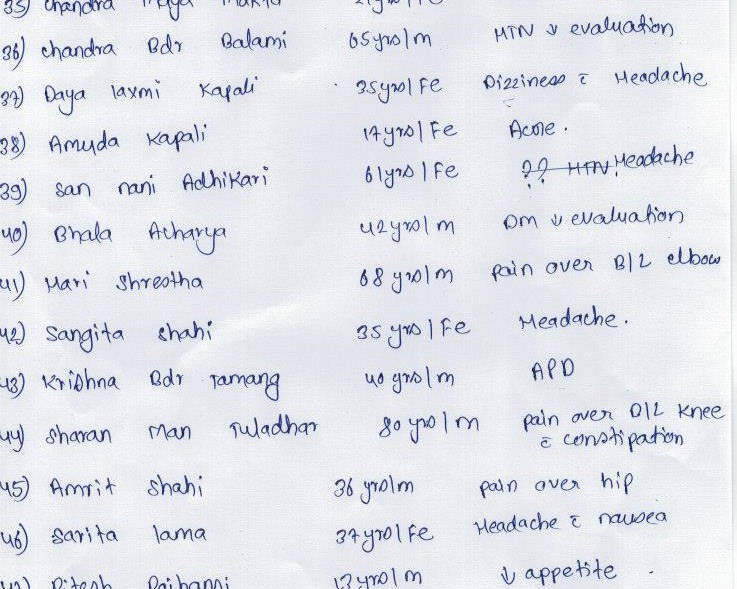 35) Chandra Maya
36) Chandra Bdr Balami 65yrs/m HTN ↓ evaluation
37) Daya laxmi Kapali 35yrs/Fe Dizziness c̄ Headache
38) Amuda Kapali 17yrs/Fe Acne.
39) San nani Adhikari 61yrs/Fe ?? HTN, Headache
40) Bhala Acharya 42yrs/m DM ↓ evaluation
41) Hari Shrestha 68 yrs/m pain over B/L elbow
42) Sangita Shahi 35 yrs/Fe Headache.
43) Krishna Bdr Tamang 40 yrs/m APD
44) Sharan Man Tuladhar 80 yrs/m pain over B/L Knee
c̄ constipation
45) Amrit Shahi 36 yrs/m pain over hip
46) Sarita lama 37yrs/Fe Headache c̄ nausea
47) Ritesh 13yrs/m ↓ appetite.